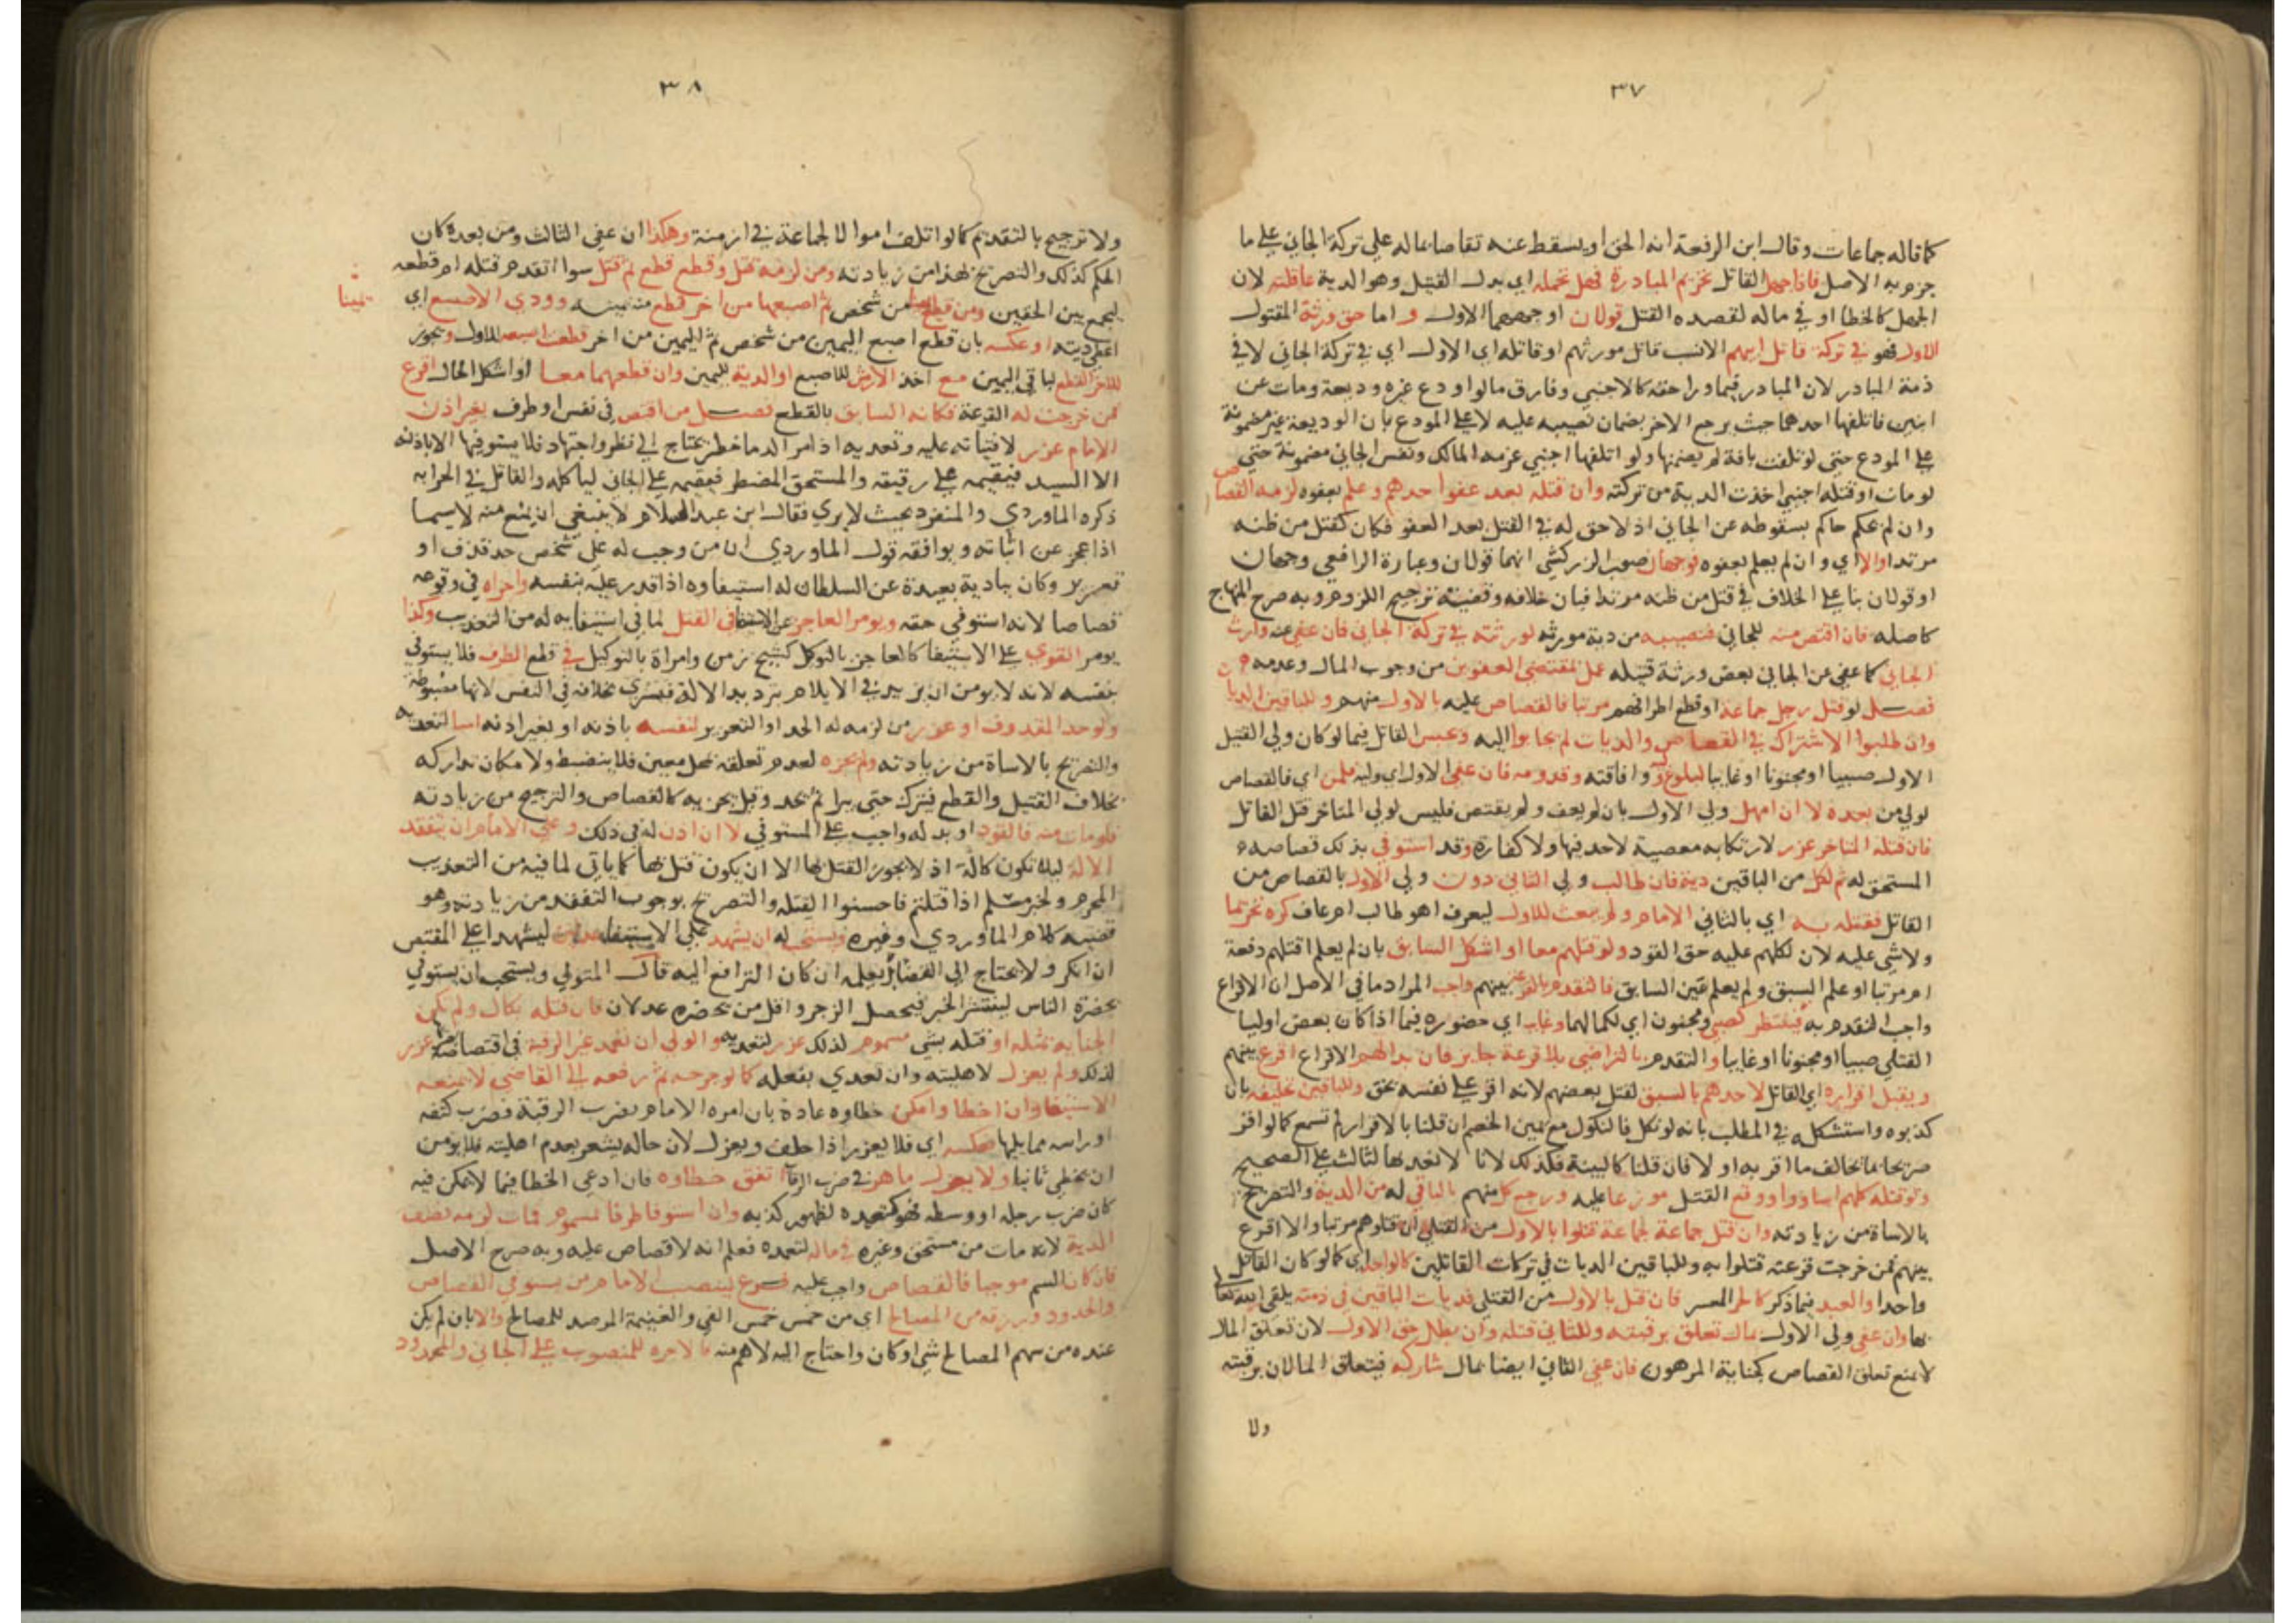 ٣٧
كما قاله جماعات وقال ابن الرفعة انه الحق او يسقط عنه تقاصا بماله علي تركة الجاني علي ما
جزم به الاصل فاذا جهل القاتل تحريم المبادرة فهل تحمله اي بدل القتيل وهو الدية عاقلته لان
الجهل كالخطا او في ماله لقصده القتل قولان اوجههما الاول واما حق ورثة المقتول
الاول فهو في تركة قاتل ابيهم الانسب قاتل مورثهم او قاتله اي الاول اي في تركة الجاني لا في
ذمة المبادر لان المبادر فيما ورا حقه كالاجنبي وفارق مالو اودع غيره وديعة ومات عن
ابنين فاتلفها احدهما حيث يرجع الاخر بضمان نصيبه عليه لا علي المودع بان الوديعة غير مضمونة
علي المودع حتي لو تلفت بافة لم يضمنها ولو اتلفها اجنبي غرمه المالك ونفس الجاني مضمونة حتي
لو مات او قتله اجنبي اخذت الدية من تركته وان قتله بعد عفو احدهم وعلم بعفوه لزمه القصاص
وان لم يحكم حاكم بسقوطه عن الجاني اذ لا حق له في القتل بعد العفو فكان كقتل من ظنه
مرتدا والا اي وان لم يعلم بعفوه فوجهان صوب الزركشي انهما قولان وعبارة الرافعي وجهان
او قولان بنا علي الخلاف في قتل من ظنه مرتدا فبان خلافه وقضيته ترجيح اللزوم وبه صرح المنهاج
كاصله فان اقتص منه للجاني فنصيبه من دية مورثه لورثته في تركة الجاني فان عفي عنه وارث
الجاني كما عفي عن الجاني بعض ورثة قتيله عمل بمقتضي العفوين من وجوب المال وعدمه
فصل لو قتل رجل جماعة او قطع اطرافهم مرتبا فالقصاص عليه بالاول منهم وللباقين الديات
وان طلبوا الاشتراك في القصاص والديات لم يجابوا اليه وحبس القاتل فيما لو كان ولي القتيل
الاول صبيا او مجنونا او غايبا لبلوغه وافاقته وقدومه فان عفي الاول اي وليه فلمن اي فالقصاص
لولي من بعده لا ان امهل ولي الاول بان لم يعف ولم يقتص فليس لولي المتاخر قتل القاتل
فان قتله المتاخر عزر لارتكابه معصية لا حد فيها ولا كفارة وقد استوفي بذلك قصاصه
المستحق له ثم لكل من الباقين دية فان طالب ولي الثاني دون ولي الاول بالقصاص من
القاتل فقتله به اي بالثاني الامام ولم يبعث للاول ليعرف اهو طالب ام عاف كره تحريما
ولا شي عليه لان لكلهم عليه حق القود ولو قتلهم معا او اشكل السابق بان لم يعلم اقتلهم دفعة
ام مرتبا او علم السبق ولم يعلم عين السابق فالتقدم بالقرعة بينهم واجب المراد ما في الاصل ان الاقراع
واجب التقدم به فينتظر كصبي ومجنون اي لكمالهما وغايب اي حضوره فيما اذا كان بعض اوليا
القتلي صبيا او مجنونا او غايبا والتقدم بالتراضي بلا قرعة جايز فان بدا لهم الاقراع اقرع بينهم
ويقبل اقراره اي القاتل لاحدهم بالسبق لقتل بعضهم لانه اقر علي نفسه بحق وللباقين تحليفه بان
كذبوه واستشكله في المطلب بانه لو نكل فالنكول مع يمين الخصم ان قلنا بالاقرار لم تسمع كما لو اقر
صريحا بما يخالف ما اقر به اولا فان قلنا كالبينة فكذلك لانا لا نعديها لثالث علي الصحيح
ولو قتله كلهم اساووا ووقع القتل موزعا عليه ورجع كل منهم بالباقي له من الدية والتصريح
بالاساة من زيادته وان قتل جماعة جماعة قتلوا بالاول من القتلي ان قتلوهم مرتبا والا اقرع
بينهم فمن خرجت قرعته قتلوا به وللباقين الديات في تركات القاتلين كالواحد اي كما لو كان القاتل
واحدا والعبد فيما ذكر كالحر المعسر فان قتل بالاول من القتلي فديات الباقين في ذمته يلقي الله تعالي
بها وان عفي ولي الاول بمال تعلق برقبته وللثاني قتله وان بطل حق الاول لان تعلق المال
لا يمنع تعلق القصاص كجناية المرهون فان عفي الثاني ايضا بمال شاركه فيتعلق المالان برقبته
ولا
٣٨
ولا ترجيح بالتقديم كما لو اتلف اموالا لجماعة في ازمنة وهكذا ان عفي الثالث ومن بعده كان
الحكم كذلك والتصريح بهذا من زيادته ومن لزمه قتل وقطع قطع ثم قتل سوا اتقدم قتله ام قطعه
ليجمع بين الحقين ومن قطع من شخص ثم اصبعها من اخر قطع منه يمينه وودي الاصبع اي
يمينا
اعطي ديته او عكسه بان قطع اصبع اليمين من شخص ثم اليمين من اخر قطعت اصبعه للاول ويجوز
للاخر القطع لباقي اليمين مع اخذ الارش للاصبع او الدية لليمين وان قطعهما معا او اشكل الحال اقرع
فمن خرجت له القرعة فكانه السابق بالقطع فصل من اقتص في نفس او طرف بغير اذن
الامام عزر لافتياته عليه وتعديه اذ امر الدما خطر يحتاج الي نظر واجتهاد فلا يستوفيها الا باذنه
الا السيد فيقيمه علي رقيقه والمستحق المضطر فيقيمه علي الجاني لياكله والقاتل في الحرابه
ذكره الماوردي والمنفرد بحيث لا يري فقال ابن عبد السلام لا ينبغي ان يمنع منه لا سيما
اذا عجز عن اثباته ويوافقه قول الماوردي ان من وجب له علي شخص حد قذف او
تعزير وكان ببادية بعيدة عن السلطان له استيفاوه اذا قدر عليه بنفسه واجزاه في وقوعه
قصاصا لانه استوفي حقه ويومر العاجز عن الاستيفا في القتل لما في استيفايه له من التعذيب وكذا
يومر القوي علي الاستيفا كالعاجز بالتوكل كشيخ زمن وامراة بالتوكيل في قطع الطرف فلا يستوفي
بنفسه لانه لا يومن ان يزيد في الايلام بترديد الالة فيسري بخلافه في النفس لانها مضبوطة
ولو حد المقذوف او عزر من لزمه له الحد او التعزير لنفسه باذنه او بغير اذنه اسا لتعديه
والتصريح بالاساة من زيادته ولم يجزه لعدم تعلقه بمحل معين فلا ينضبط ولامكان تداركه
بخلاف القتيل والقطع فيترك حتي يبرا ثم يحد وقيل يجزيه كالقصاص والترجيح من زيادته
فلو مات منه فالقود او بدله واجب علي المستوفي لا ان اذن له في ذلك وعلي الامام ان يتفقد
الالة ليلا تكون كالة اذ لا يجوز القتل بها الا ان يكون قتل بها كما ياتي لما فيه من التعذيب
المحرم ولخبر مسلم اذا قتلتم فاحسنوا القتله والتصريح بوجوب التفقد من زيادته وهو
قضيه كلام الماوردي وغيره ويستحب له ان يشهد علي الاستيفا عدلين ليشهدا علي المقتص
ان انكر ولا يحتاج الي القضا بعلمه ان كان الترافع اليه قال المتولي ويستحب ان يستوفي
بحضرة الناس لينتشر الخبر فيحصل الزجر واقل من يحضره عدلان فان قتله بكال ولم تكن
الجناية بمثله او قتله بشي مسموم لذلك عزر لتعديه والولي ان تعمد غير الرقبة في اقتصاصه عزر
لذلك ولم يعزل لاهليته وان تعدي بفعله كما لو جرحه ثم رفعه الي القاضي لا يمنعه
الاستيفا وان اخطا وامكن خطاوه عادة بان امره الامام بضرب الرقبة فضرب كتفه
او راسه مما يليها فعكسه اي فلا يعزر اذا حلف ويعزل لان حاله يشعر بعدم اهليته فلا يومن
ان يخطي ثانيا ولا يعزل ماهر في ضرب الرقاب اتفق خطاوه فان ادعي الخطا فيما لا يمكن فيه
كان ضرب رجله او وسطه فهو كتعمده لظهور كذبه وان استوفا طرفا بمسموم فمات لزمه نصف
الدية لانه مات من مستحق وغيره في ماله لتعمده فعلم انه لا قصاص عليه وبه صرح الاصل
فان كان السم موجبا فالقصاص واجب عليه فرع لينصب الامام من يستوفي القصاص
والحدود ورزقه من المصالح اي من خمس خمس الفي والغنيمة المرصد للمصالح والا بان لم يكن
عنده من سهم المصالح شي او كان واحتاج اليه لاهم منه فالاجره للمنصوب علي الجاني والمحدود